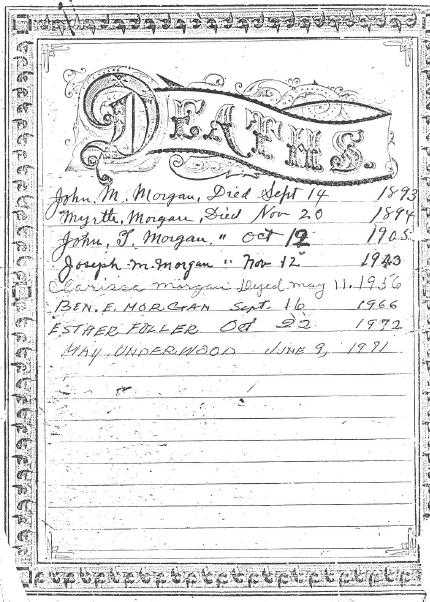 DEATHS.
John. M. Morgan, Died Sept 14 1893
Myrtle, Morgan, Died Nov 20 1894
John, T. Morgan. " Oct 12 1905
Joseph. M. Morgan " Nov 12 1923
Clarissa Morgan Dyed May 11. 1956
BEN. E. MORGAN Sept. 16 1966
ESTHER FULLER Oct 22 1972
MAY UNDERWOOD JUNE 9, 1971